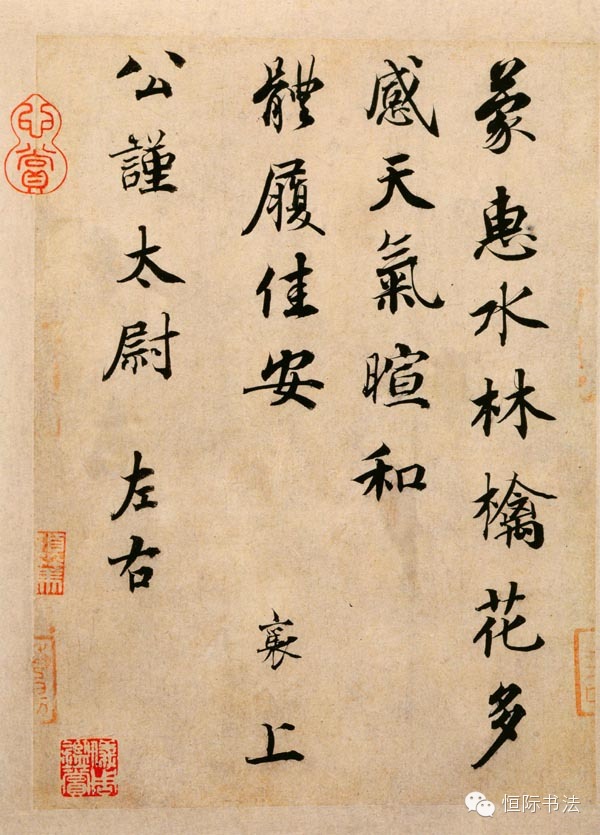 蒙惠水林檎花多
感天氣暄和
體履佳安 襄上
公謹太尉 左右
恒际书法